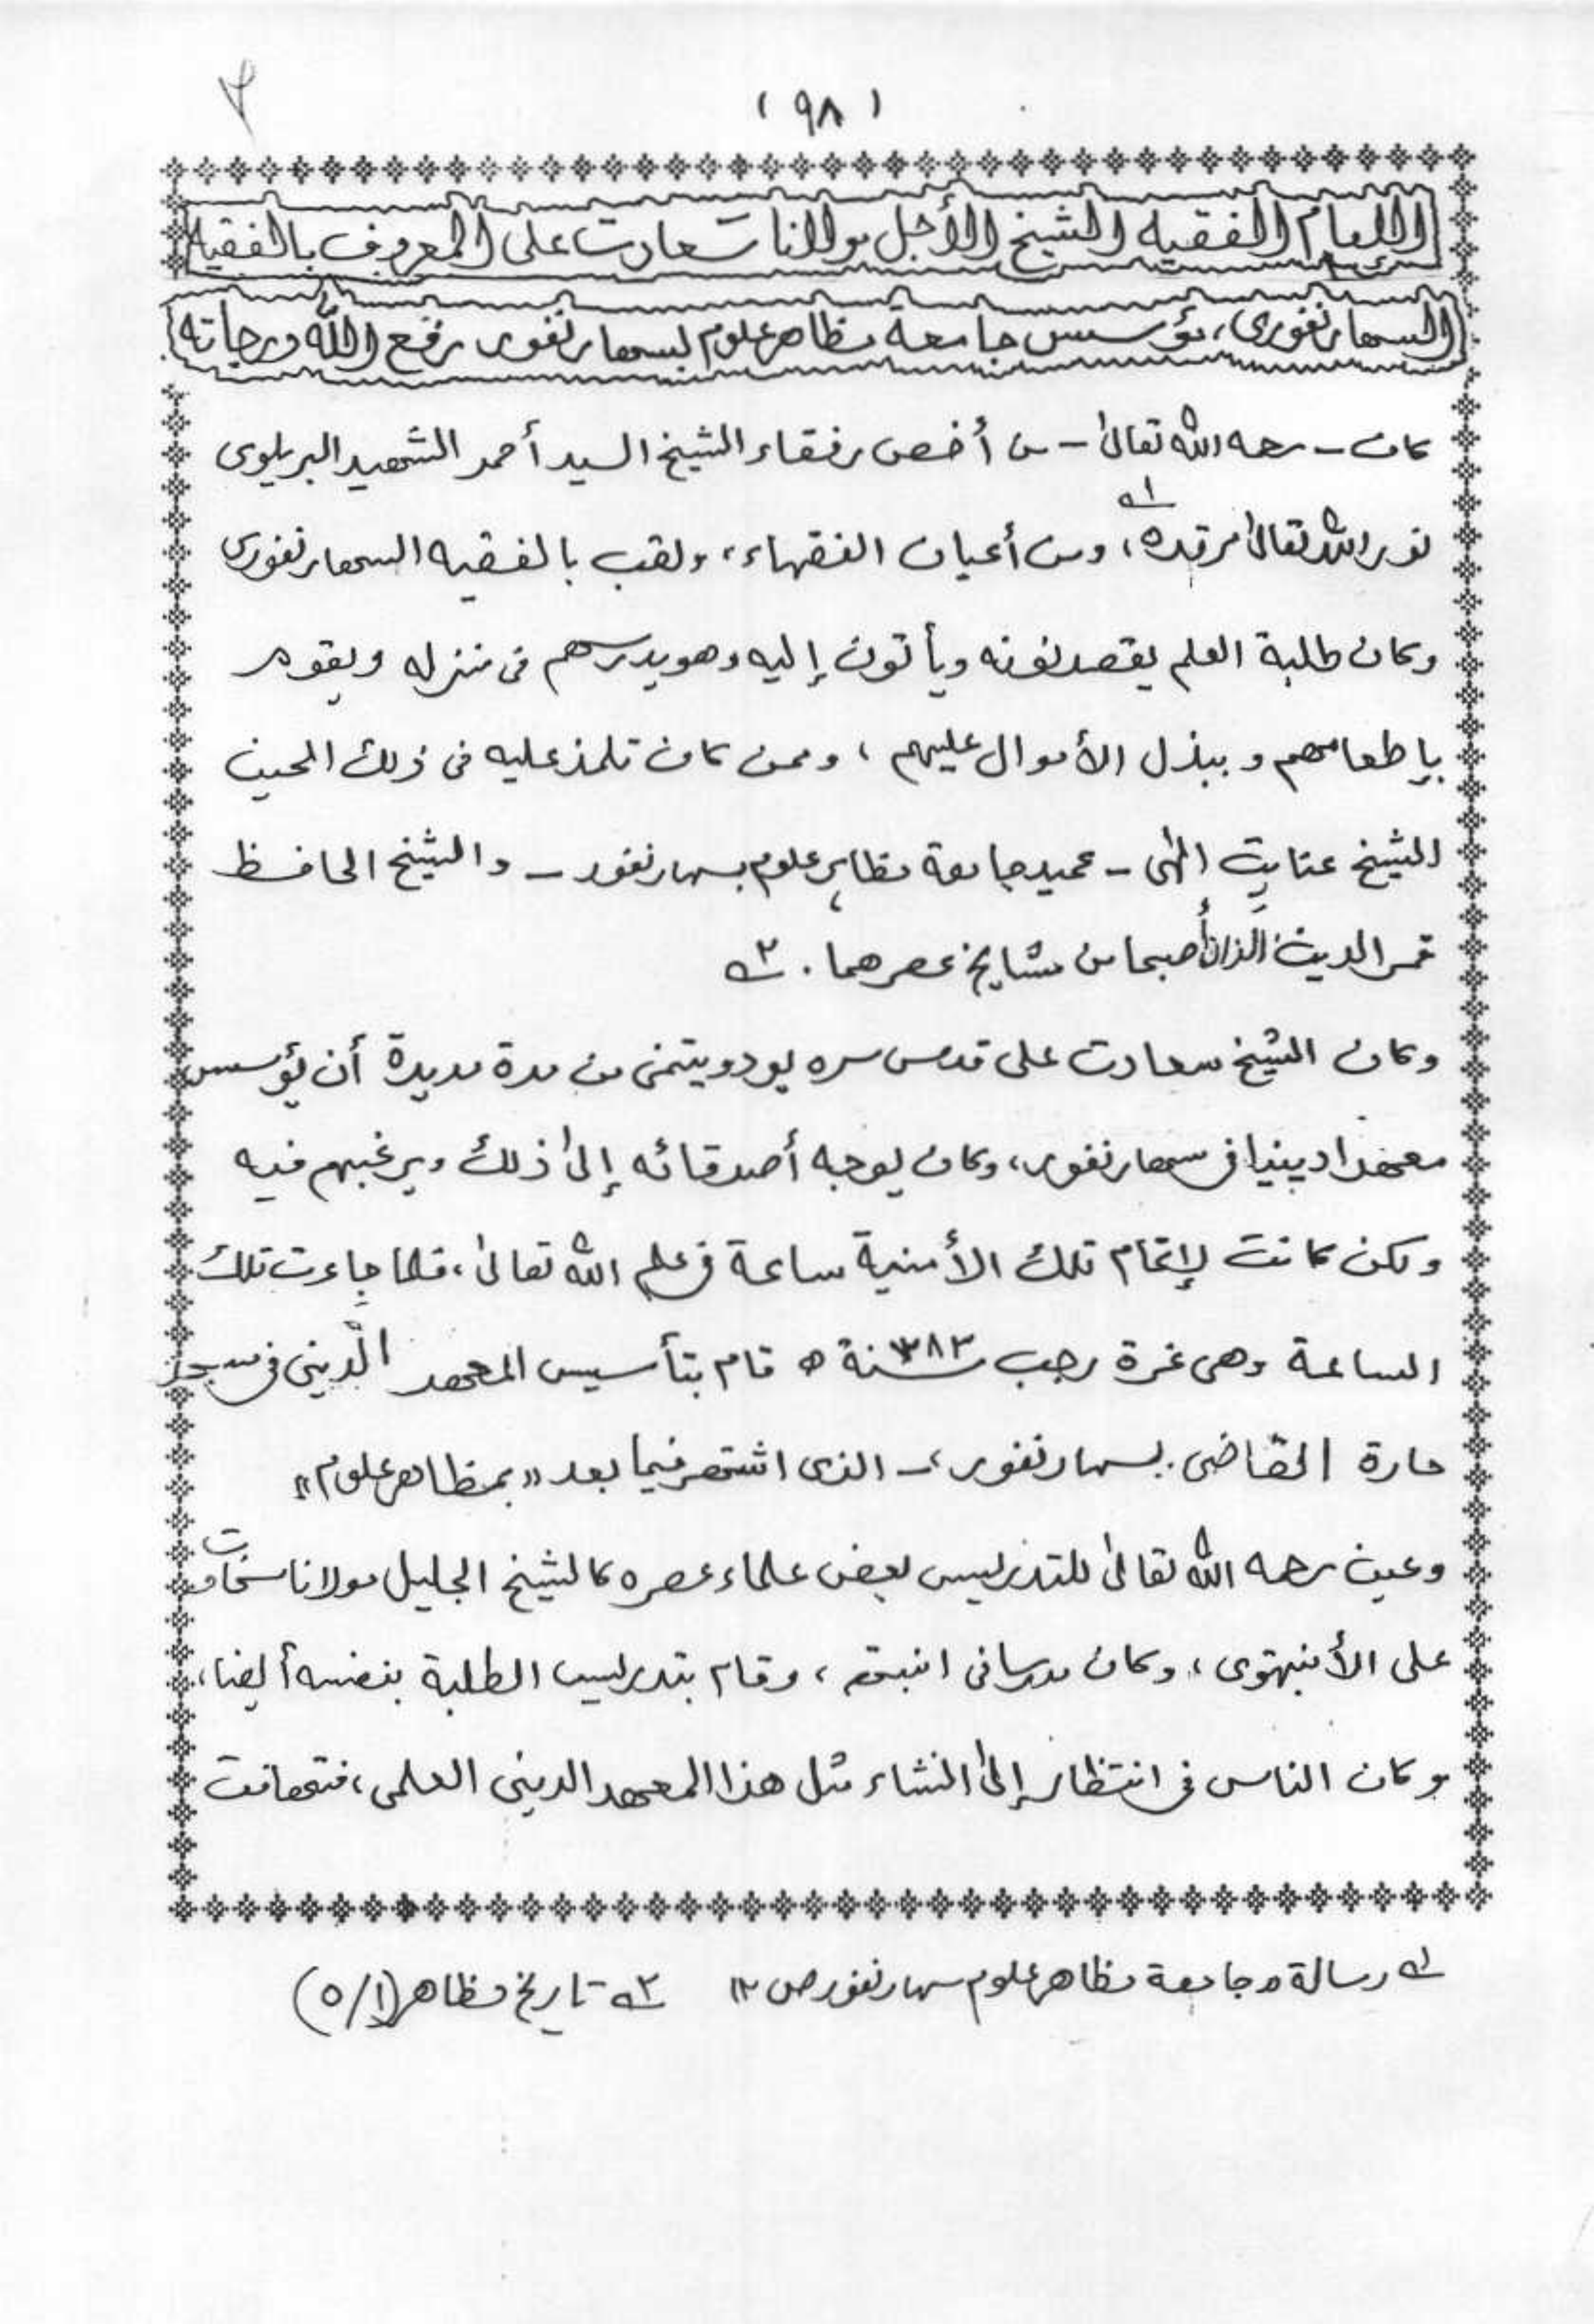 (٩٨)
الإمام الفقيه الشيخ الأجل مولانا سعادت على المعروف بالفقيه
السهارنفورى، مؤسس جامعة مظاهر علوم بسهارنفور رفع الله درجاته
كان - رحمه الله تعالىٰ - من أخص رفقاء الشيخ السيد أحمد الشهيد البريلوى
نور الله تعالىٰ مرقده ١ـه، ومن أعيان الفقهاء، ولقب بالفقيه السهارنفورى
وكان طلبة العلم يقصدونه ويأتون إليه وهو يدرسهم فى منزله ويقوم
بإطعامهم و ببذل الأموال عليهم ، وممن كان تلمذ عليه فى ذلك الحين
الشيخ عنايت إلٰهى - عميد جامعة مظاہر علوم بسہارنفور - والشيخ الحافظ
قمر الدين الَّذان أصبحا من مشايخ عصرهما . ٢ـه
وكان الشيخ سعادت على قدس سره يود ويتمنى من مدة مديدة أن يؤسس
معهدا دينيا فى سهارنفور، وكان يوجه أصدقائه إلىٰ ذلك ويرغبهم فيه
ولكن كانت لإتمام تلك الأمنية ساعة فى علم الله تعالىٰ، فلما جاءت تلك
الساعة وهى غرة رجب سنة ١٢٨٣ ه قام بتأسيس المعهد الدّينى فى مسجد
حارة القاضى بسهارنفور، - الذى اشتهر فيما بعد «بمظاهر علوم»
وعين رحمه الله تعالىٰ للتدريس بعض علماء عصره كالشيخ الجليل مولانا سخاوت
على الأنبهتوى ، وكان مدرسا فى انبهته ، وقام بتدريس الطلبة بنفسه أيضا،
و كان الناس فى انتظار إلىٰ انشاء مثل هذا المعهد الدينى العلمى ، فتهافت
١ـه رسالة جامعة مظاهر علوم سهارنفور ص ١٢ ٢ـه تاريخ مظاهر (١/٥)